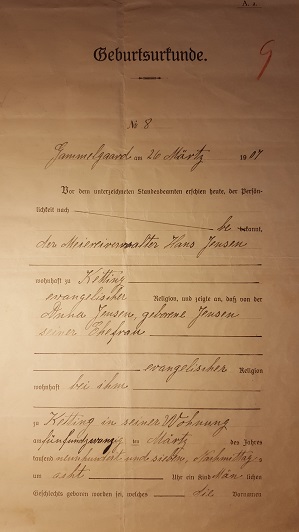 A. 1.
9
Geburtsurkunde.
No 8
Gammelgaard am 26 Märtz 1907
Vor dem unterzeichneten Standesbeamten erschien heute, der Persön-
lichkeit nach
be kannt,
der Meiereiverwalter Hans Jensen
wohnhaft zu Ketting
evangelischer Religion, und zeigte an, daß von der
Jensen, geborene Jensen
seiner Ehefrau
evangelischer Religion
wohnhaft bei ihm
zu Ketting in seiner Wohnung
am fünfundzwanzig ten Märtz des Jahres
tausend neunhundert und sieben, Nachmittag s
um acht Uhr ein Kind Män liches
Geschlechts geboren worden sei, welches die Vornamen